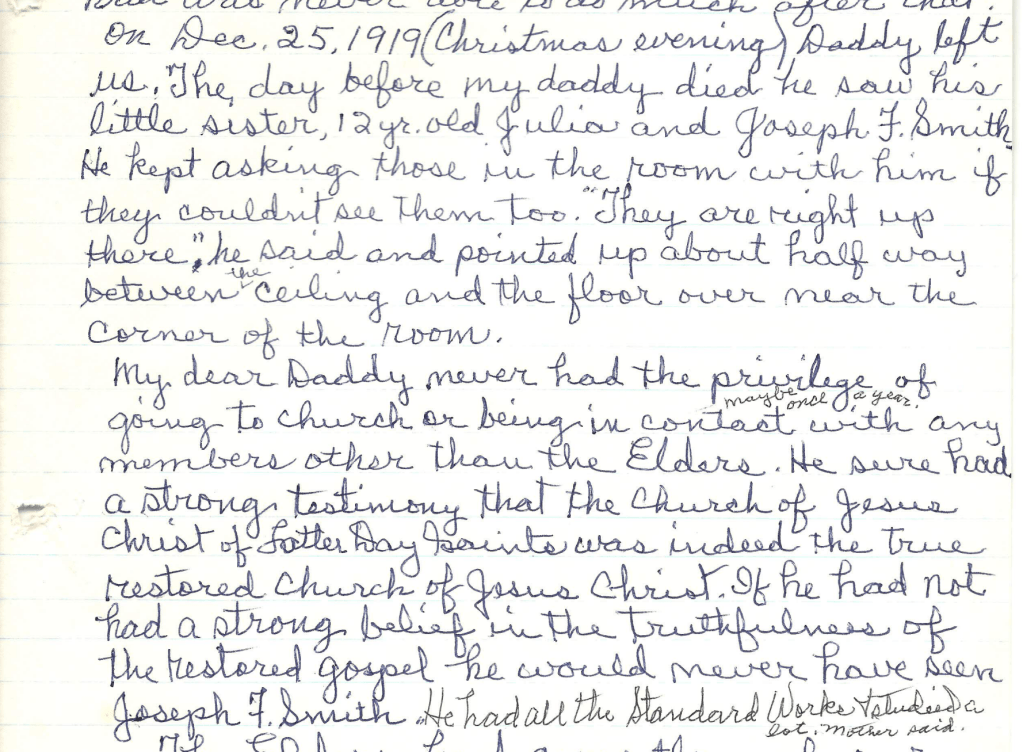 was never able to do much after that.
On Dec. 25, 1919 (Christmas evening) Daddy left
us. The day before my daddy died he saw his
little sister, 12 yr. old Julia and Joseph F. Smith.
He kept asking those in the room with him if
they couldn't see them too. "They are right up
there", he said and pointed up about half way
between the ceiling and the floor over near the
corner of the room.
My dear Daddy never had the privilege of
maybe once a year.
going to church or being in contact with any
members other than the Elders. He sure had
a strong testimony that the Church of Jesus
Christ of Latter Day Saints was indeed the true
restored Church of Jesus Christ. If he had not
had a strong belief in the truthfulness of
the restored gospel he would never have seen
Joseph F. Smith. He had all the Standard Works & studied a
lot, Mother said.